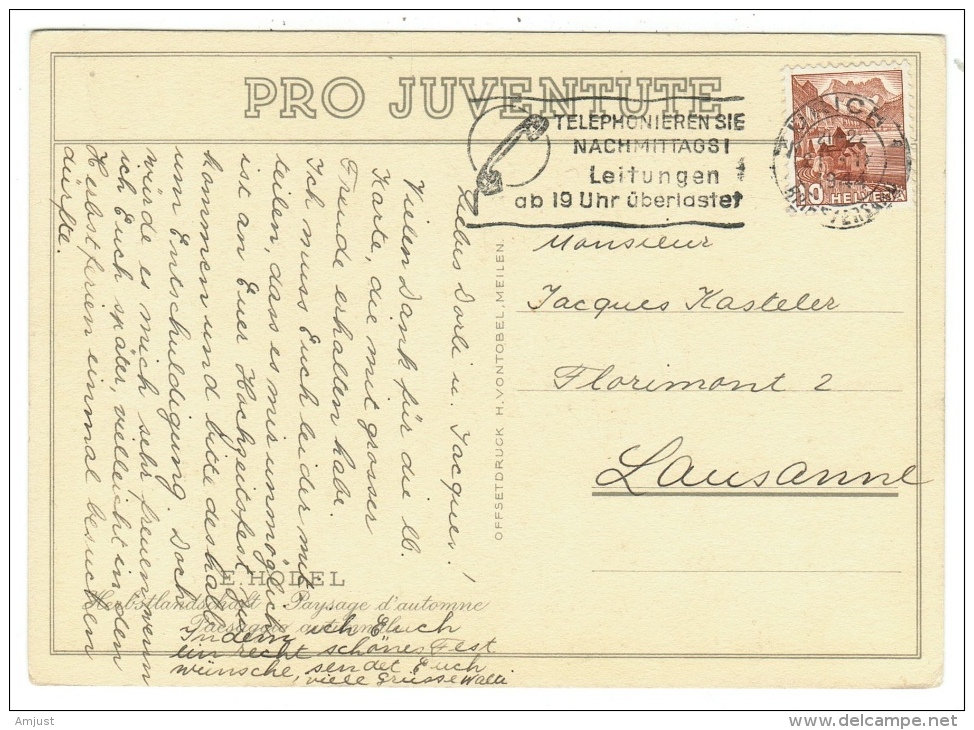 PRO JUVENTUTE
TELEPHONIEREN SIE
NACHMITTAGS!
Leitungen
ab 19 Uhr überlastet
10 HELVETIA
Monsieur
Jacques Kasteler
Florimont 2
Lausanne
OFFSETDRUCK H. VONTOBEL, MEILEN
Liebes Dorli u. Jacques!
Vielen Dank für die lb.
Karte, die mit grosser
Freude erhalten habe.
Ich muss Euch leider mit-
teilen, dass es mir unmöglich
ist an Euer Hochzeitsfest zu
kommen und bitte deshalb
um Entschuldigung. Doch
würde es mich sehr freuen wenn
ich Euch später, vielleicht in den
Herbstferien einmal besuchen
dürfte.
E. HODEL
Herbstlandschaft - Paysage d'automne
Paesaggio autunnale
Indem ich Euch
ein recht schönes Fest
wünsche, sendet Euch
viele Grüsse Walti
Amjust
delcampe.net